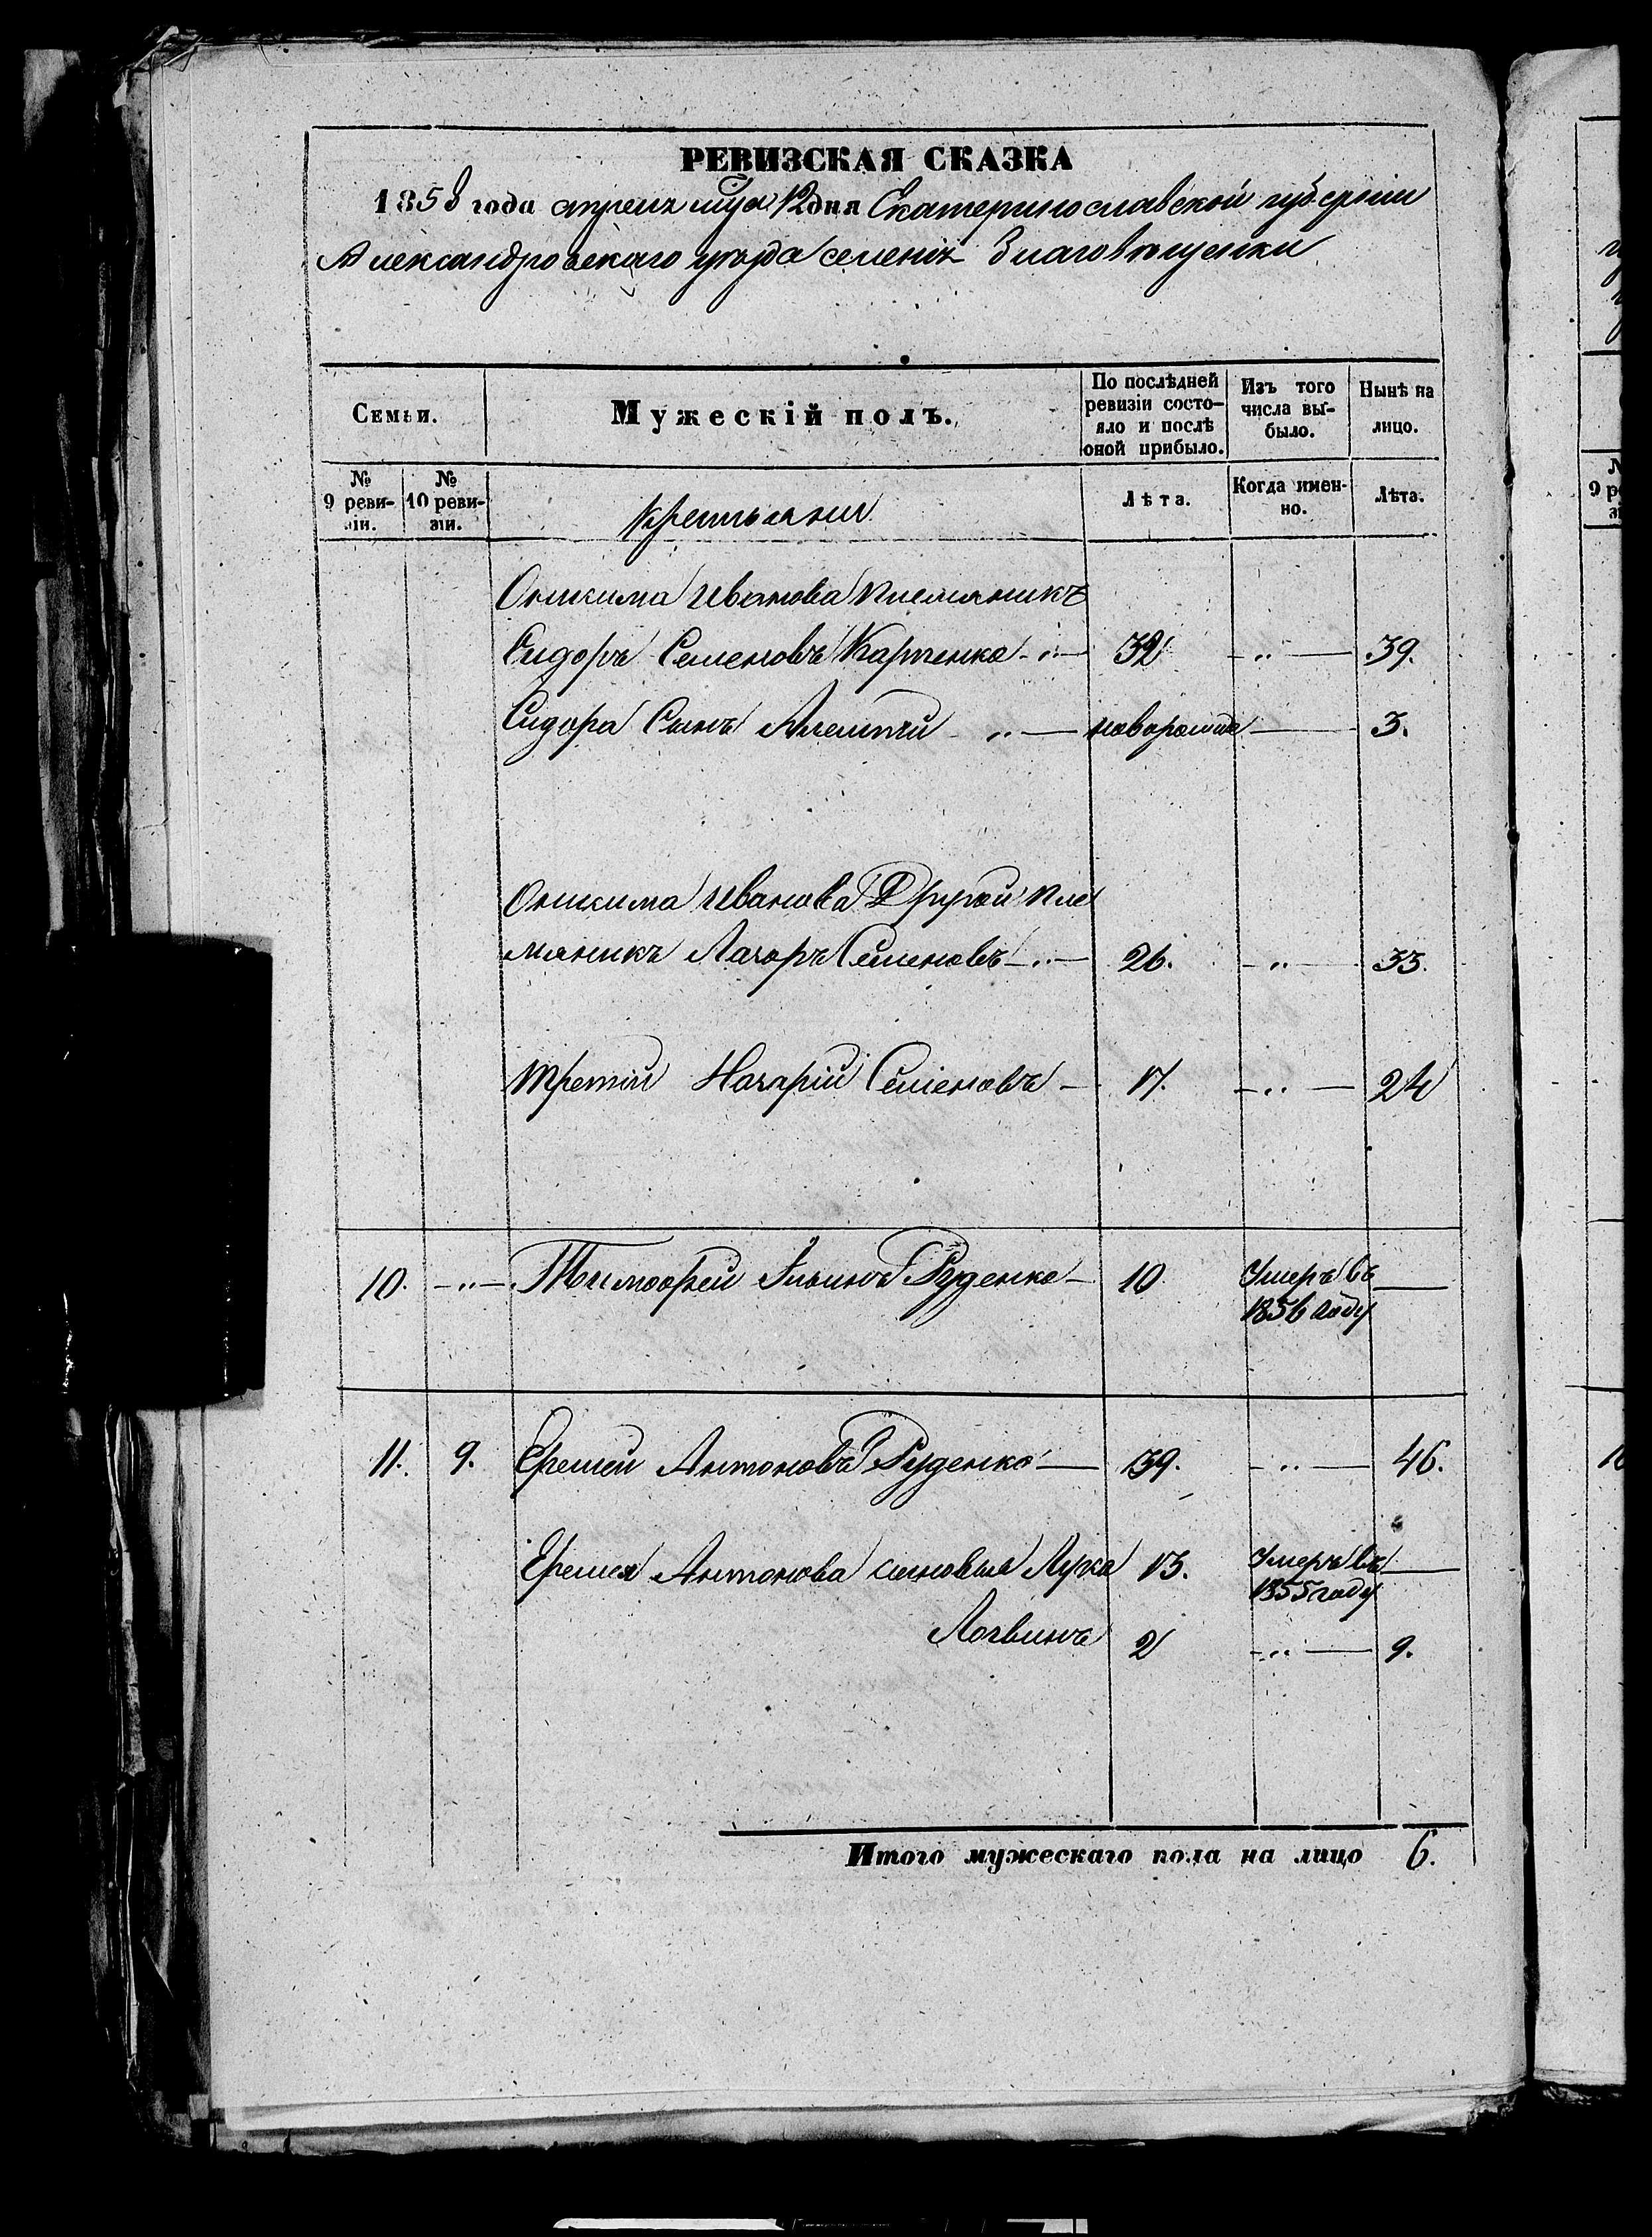 РЕВИЗСКАЯ СКАЗКА
1858 года апреля мца 12 дня Екатеринославской губернии
Александровскаго уезда селения
Семьи.
Мужескій полъ.
По послѣдней ревизіи состояло и послѣ оной прибыло.
Изъ того числа выбыло.
Нынѣ на лицо.
№ 9 ревизіи.
№ 10 ревизіи.
Крестьяни
Лѣта.
Когда именно.
Лѣта.
Онисима Иванова племяникъ
Сидоръ Семеновъ Карпенко - " — 32 - " — 39.
Сидора Сынъ - " — новорожде — 3.
Онисима Иванова Другой пле
мяникъ Лазоръ Семеновъ - " — 26. - " — 33.
третій Назарій Семеновъ - 17. - " — 24
10. - " - Тимофей Ильинъ Руденко - 10 Умеръ въ —
1856 году
11. 9. Еремей Антоновъ Руденко — 39. - " — 46.
Еремея Антонова сыновья Лука 13. Умеръ въ —
1855 году
Логвинъ 2 - " — 9.
Итого мужескаго пола на лицо 6.